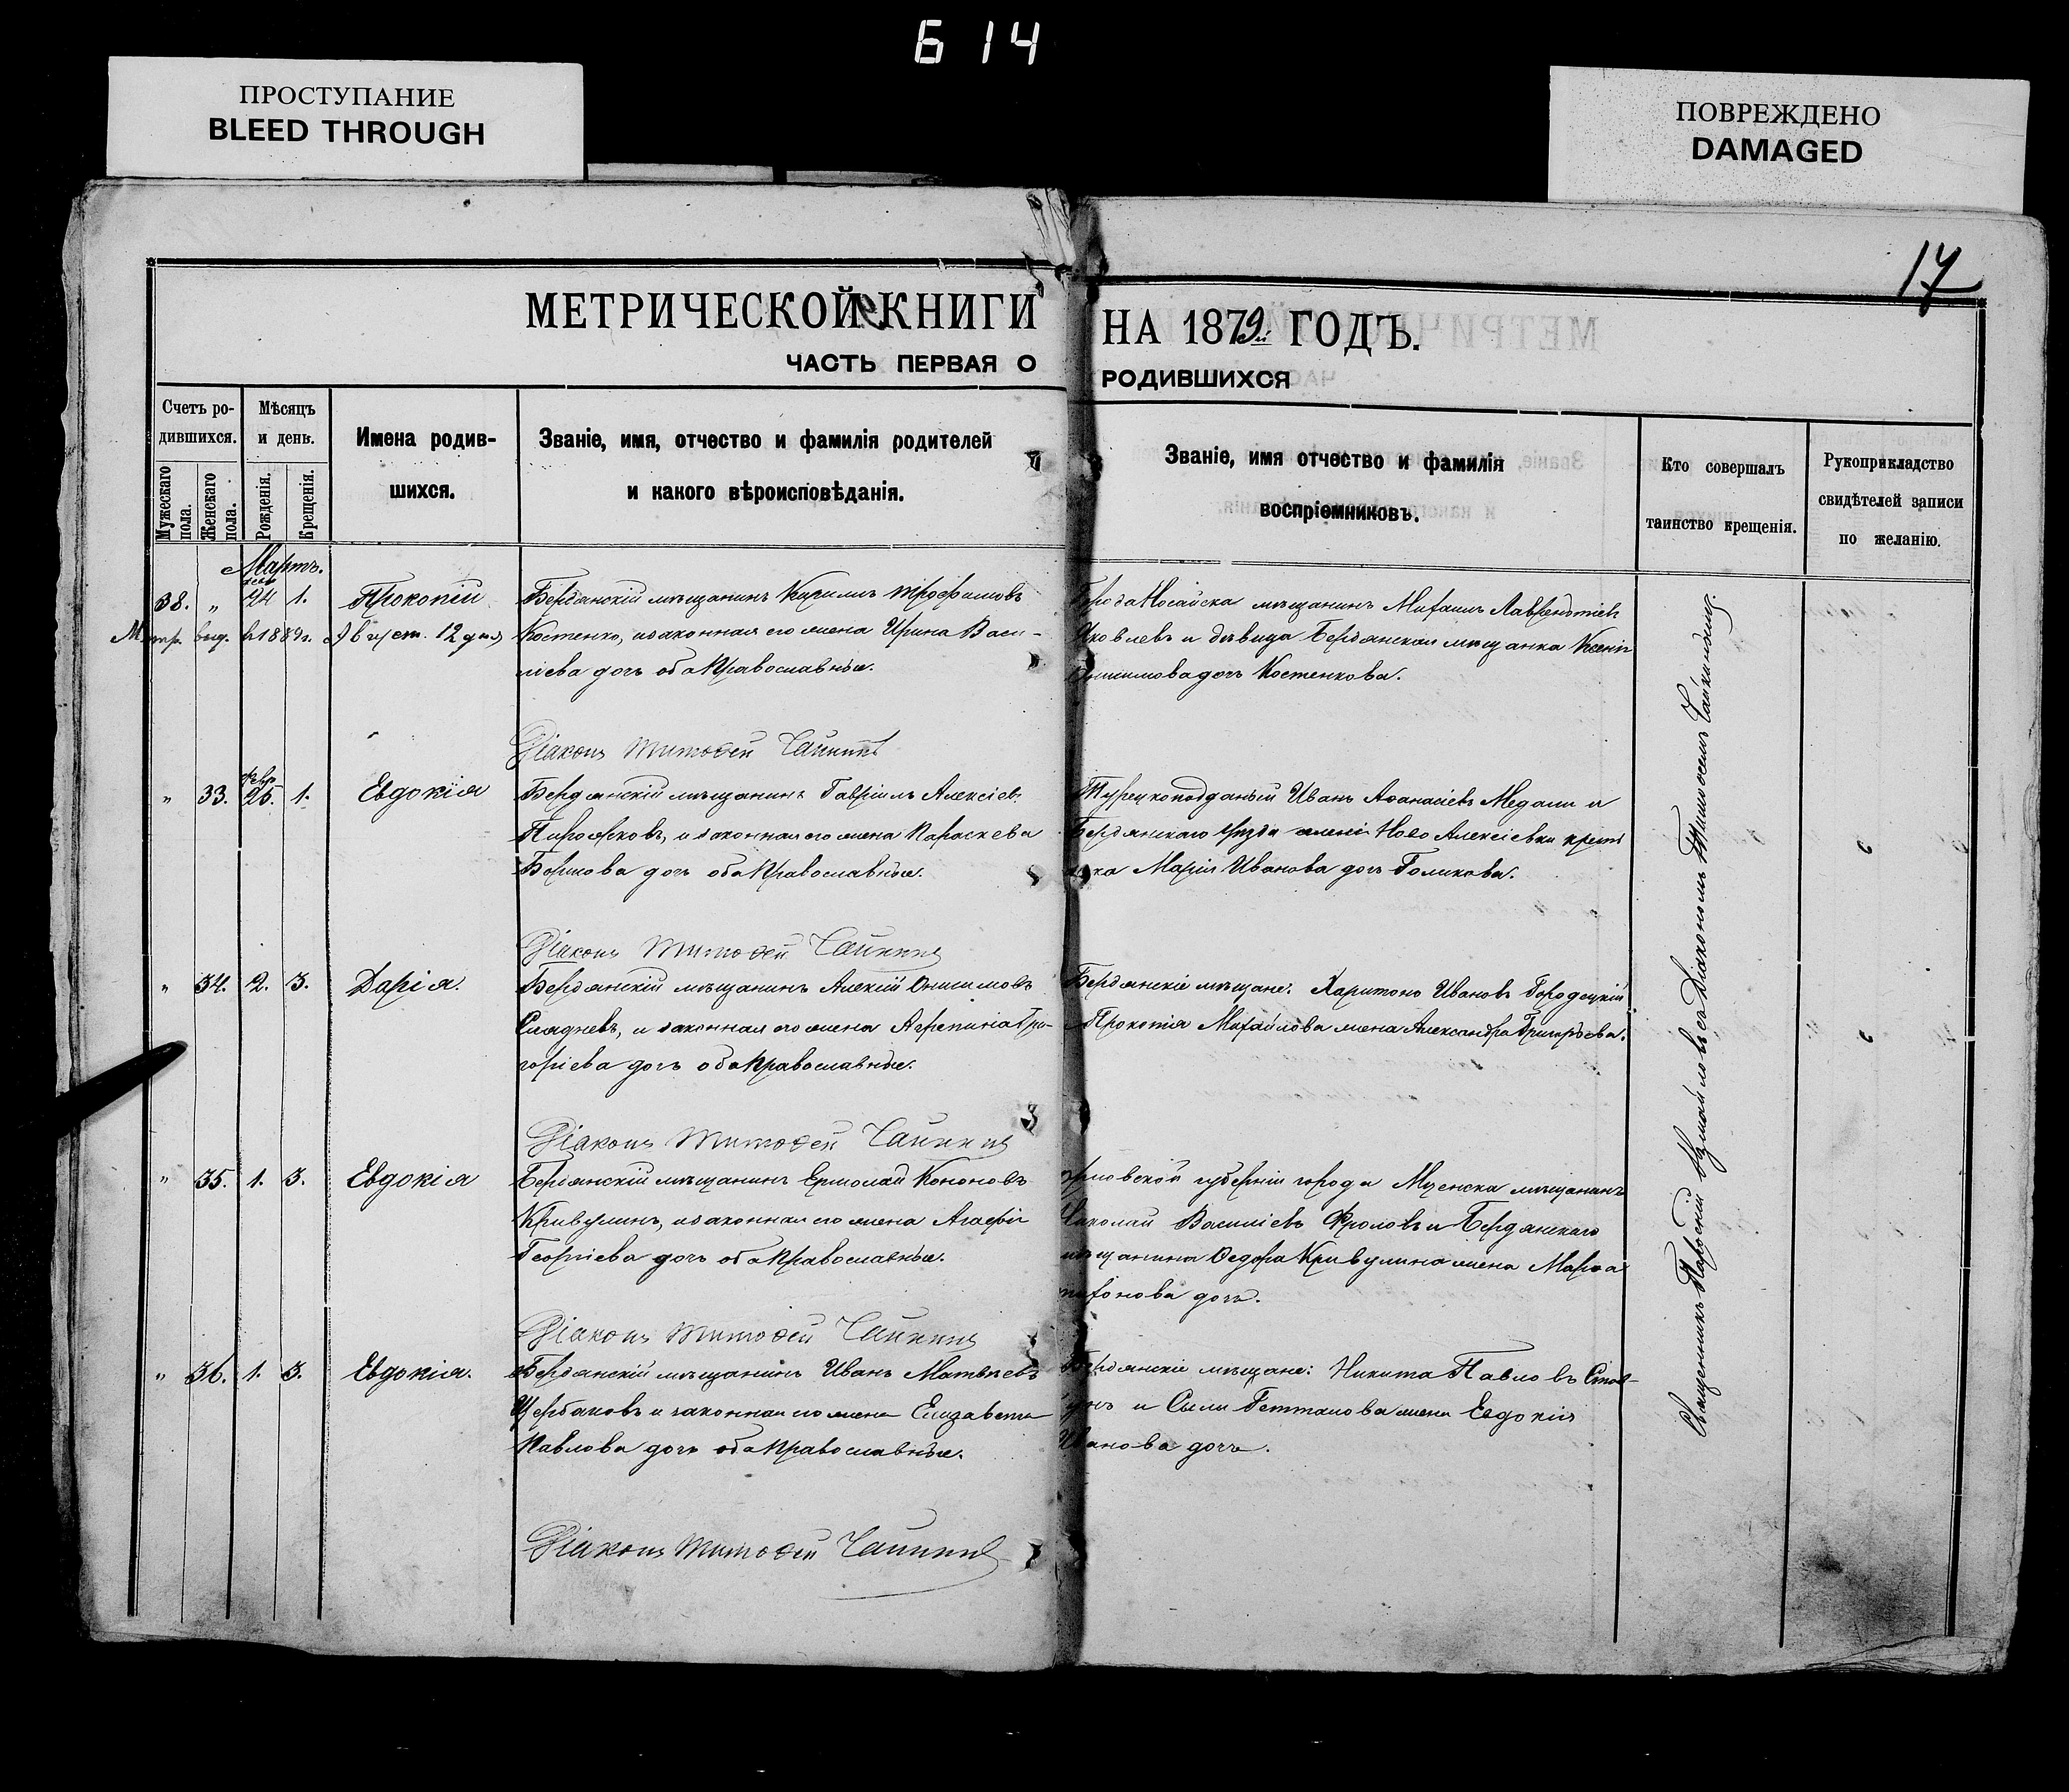 614
ПРОСТУПАНИЕ
BLEED THROUGH
ПОВРЕЖДЕНО
DAMAGED
17
МЕТРИЧЕСКОЙ КНИГИ
НА 1879й ГОДЪ.
ЧАСТЬ ПЕРВАЯ О
РОДИВШИХСЯ
Счетъ ро-
дившихся.
Мужескаго пола.
Женскаго пола.
Мѣсяцъ
и день.
Рожденія.
Крещенія.
Имена родив-
шихся.
Званіе, имя, отчество и фамилія родителей
и какого вѣроисповѣданія.
Званіе, имя отчество и фамилія
воспріемниковъ.
Кто совершалъ
таинство крещенія.
Рукоприкладство
свидѣтелей записи
по желанію.
Мартъ.
38. „ 24 1. Прокопій
Метр. выд. въ 1889 г. Август. 12 дня
Бердянскій мѣщанинъ Кириллъ Трофимовъ
Костенко, и законная его жена Ирина Васи-
ліева дочь оба Православные.
Города Ногайска мѣщанинъ Михаилъ Лаврентіевъ
Яковлевъ и дѣвица Бердянская мѣщанка Ксенія
дочь Костенкова.
Діаконъ Тимофей
„ 33. февр. 26. 1. Евдокія
Бердянскій мѣщанинъ Гавріилъ Алексіевъ
и законная его жена Параскева
Борисова дочь оба Православные.
Турецкоподданый Иванъ Аѳанасіевъ Медали и
Бердянскаго уѣзда Ново Алексіевки крестъ
янка Марія Иванова дочь Голикова.
Діаконъ Тимофей
„ 34. 2. 3. Дарія.
Бердянскій мѣщанинъ Алексій Онисимовъ
и законная его жена Агрепина Гри-
горіева дочь оба Православные.
Бердянскіе мѣщане: Харитонъ Ивановъ Городецкій
и Прокопія Михайлова жена Александра Григорьева.
Діаконъ Тимофей
„ 35. 1. 3. Евдокія
Бердянскій мѣщанинъ Ермолай Кононовъ
Кривулинъ, и законная его жена Агафія
Георгіева дочь оба Православные.
Орловской губерніи города Мценска мѣщанинъ
Николай Василіевъ Фроловъ и Бердянскаго
мѣщанина Ѳедора Кривулина жена Марѳа
дочь.
Діаконъ Тимофей
„ 36. 1. 3. Евдокія.
Бердянскій мѣщанинъ Иванъ Матвѣевъ
Щербаковъ и законная его жена Елизавета
Павлова дочь оба Православные.
Бердянскіе мѣщане: Никита Павловъ
и Силы жена Евдокія
Иванова дочь.
Діаконъ Тимофей
Священникъ Измайловъ съ Діакономъ Тимофеемъ